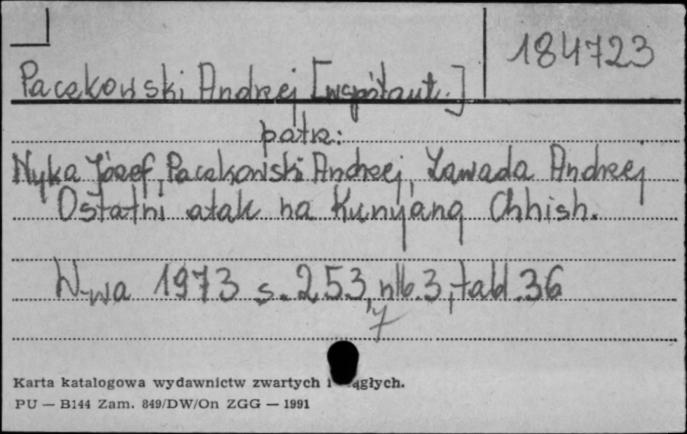 184723
Paczkowski Andrzej [współaut.]
patrz:
Nyka Józef, Paczkowski Andrzej, Zawada Andrzej
Ostatni atak na Kunyang Chhish.
W-wa 1973 s. 253, nlb. 3, tabl. 36
7
Karta katalogowa wydawnictw zwartych i ciągłych.
PU — B144 Zam. 849/DW/On ZGG — 1991